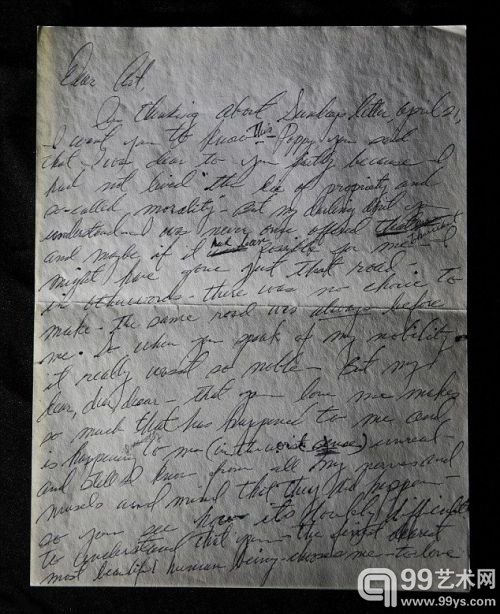 Dear Art,
I'm thinking about Sunday's letter, April 21,
I want you to know This - Poppy, you said
that I was dear to you partly because I
had not lived the lie of propriety and
so-called morality - But my darling
understand - I was never once offered that
and maybe if it had been possible for me - I
might have gone just that road -
in otherwords - there was no choice to
make - the same road was always before
me. So when you speak of my nobility
it really wasn't so noble - But my
dear, dear, dear - that you love me makes
so much that has happened to me and
is happening to me (in the work sense) unreal -
and still I know from all my nerves and
musels and mind that they did happen -
so you see how it's doubly difficult
to understand that you - the first dearest
most beautiful human being chooses me - to love
99艺术网
www.99ys.com